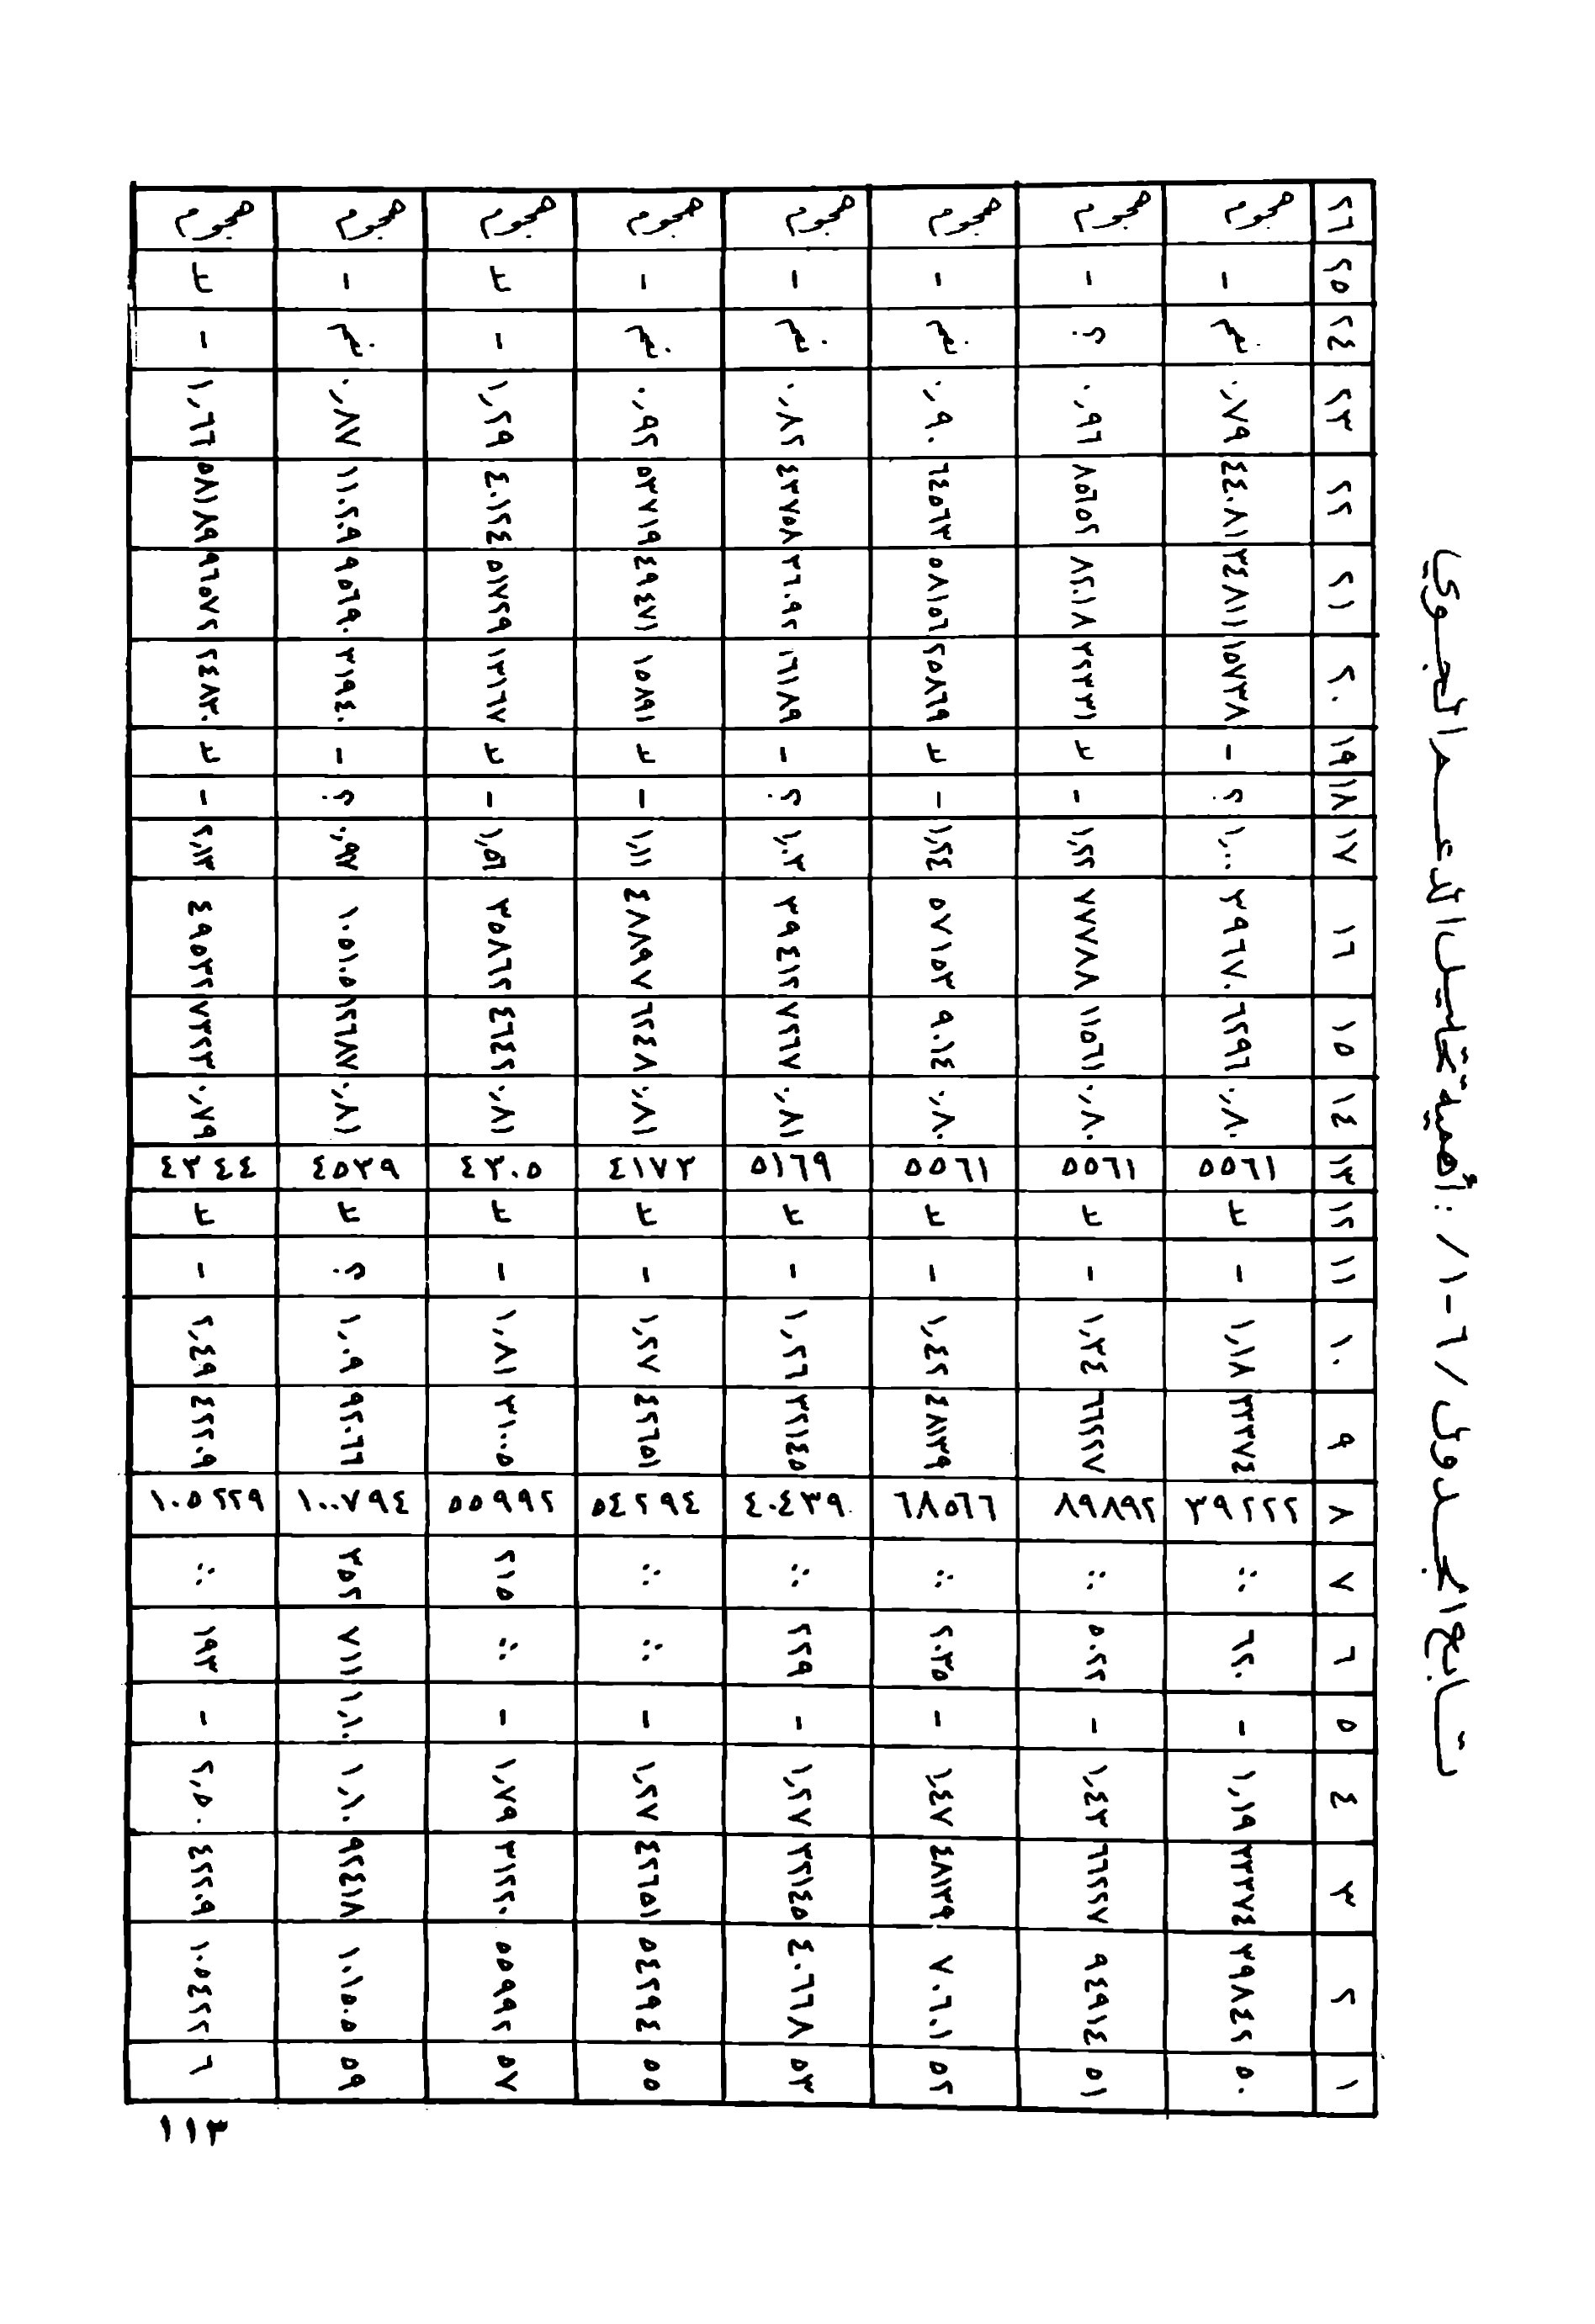 تابع الجدول /٦-١/ : أهمية تحليل الدعم الجوي
١ ٢ ٣ ٤ ٥ ٦ ٧ ٨ ٩ ١٠ ١١ ١٢ ١٣ ١٤ ١٥ ١٦ ١٧ ١٨ ١٩ ٢٠ ٢١ ٢٢ ٢٣ ٢٤ ٢٥ ٢٦
٥٠ ٣٩٨٤٢ ٣٣٣٧٤ ١,١٩ - ٦٢٠ ∴ ٣٩٢٢٢ ٣٣٣٧٤ ١,١٨ - لا ٥٥٦١ ٠,٨٠ ٦٢٩٦ ٣٩٦٧٠ ١,٠٠ ؟ - ١٥٧٣٨ ٣٤٨١١ ٤٤٠٨١ ٠,٧٩ نعم - هجوم
٥١ ٩٤٩١٤ ٦٦٢٢٧ ١,٤٣ - ٥٠٢٢ ∴ ٨٩٨٩٢ ٦٦٢٢٧ ١,٣٤ - لا ٥٥٦١ ٠,٨٠ ١١٥٦١ ٧٧٧٨٨ ١,٢٢ - لا ٣٢٣٣١ ٨٢٠١٨ ٨٥٦٥٢ ٠,٩٦ ؟ - هجوم
٥٢ ٧٠٦٠١ ٤٨١٣٩ ١,٤٧ - ٢٠٣٥ ∴ ٦٨٥٦٦ ٤٨١٣٩ ١,٤٢ - لا ٥٥٦١ ٠,٨٠ ٩٠١٤ ٥٧١٥٣ ١,٢٤ - لا ٢٥٨٦٩ ٥٨١٥٦ ٦٤٥٦٣ ٠,٩٠ نعم - هجوم
٥٣ ٤٠٦٦٨ ٣٢١٤٥ ١,٢٧ - ٢٢٩ ∴ ٤٠٤٣٩ ٣٢١٤٥ ١,٢٦ - لا ٥١٦٩ ٠,٨١ ٧٢٦٧ ٣٩٤١٢ ١,٠٣ ؟ - ١٦١٨٩ ٣٦٠٩٢ ٤٣٧٥٨ ٠,٨٢ نعم - هجوم
٥٥ ٥٤٢٩٤ ٤٢٦٥١ ١,٢٧ - ∴ ∴ ٥٤٢٩٤ ٤٢٦٥١ ١,٢٧ - لا ٤١٧٣ ٠,٨١ ٦٢٤٨ ٤٨٨٩٧ ١,١١ - لا ١٥٨٩١ ٤٩٤٧١ ٥٣٧١٩ ٠,٩٢ نعم - هجوم
٥٧ ٥٥٩٩٢ ٣١٢٢٠ ١,٧٩ - ∴ ٢١٥ ٥٥٩٩٢ ٣١٠٠٥ ١,٨١ - لا ٤٣٠٥ ٠,٨١ ٤٦٤٢ ٣٥٨٦٢ ١,٥٦ - لا ١٣١٦٧ ٥١٧٢٩ ٤٠١٢٤ ١,٢٩ - لا هجوم
٥٩ ١٠١٥٠٥ ٩٢٤١٨ ١,١٠ ١,١٠ ٧١١ ٣٥٢ ١٠٠٧٩٤ ٩٢٠٦٦ ١,٠٩ ؟ لا ٤٥�٩ ٠,٨١ ١٢٦٨٧ ١٠٥١٠٥ ٠,٩٧ ؟ - ٣١٩٤٠ ٩٥٦٩٠ ١١٠٢٠٩ ٠,٨٧ نعم - هجوم
٦ ١٠٥٤٢٢ ٤٢٢٠٩ ٢,٥٠ - ١٩٣ ∴ ١٠٥٢٢٩ ٤٢٢٠٩ ٢,٤٩ - لا ٤٣٤٤ ٠,٧٩ ٧٣٢٣ ٤٩٥٣٢ ٢,١٣ - لا ٢٤٨٣٠ ٩٦٥٧٢ ٥٨١٨٩ ١,٦٦ - لا هجوم
١١٣